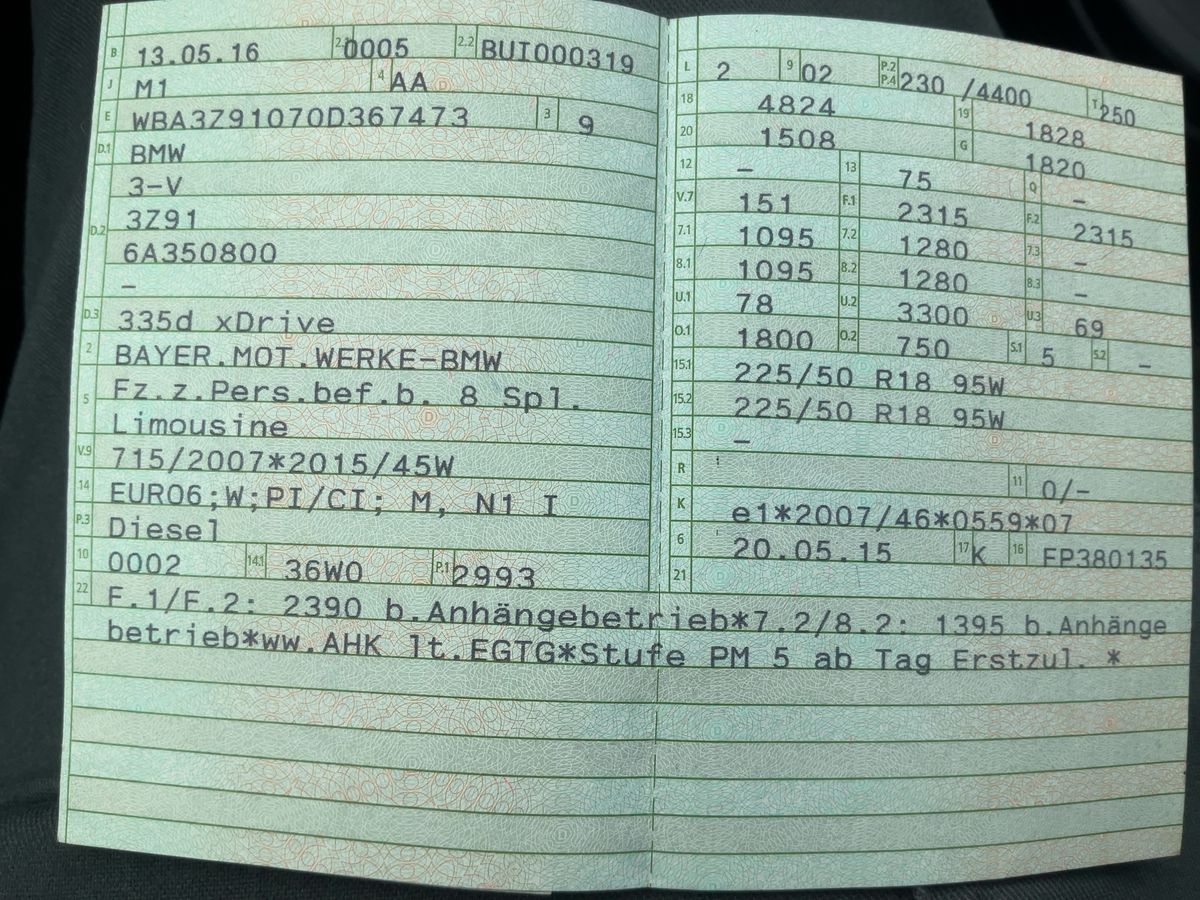 B 13.05.16 2.1 0005 2.2 BUI000319
J M1 4 AA
E WBA3Z91070D367473 3 9
D.1 BMW
3-V
D.2 3Z91
6A350800
–
D.3 335d xDrive
2 BAYER.MOT.WERKE-BMW
5 Fz.z.Pers.bef.b. 8 Spl.
Limousine
V.9 715/2007*2015/45W
14 EURO6;W;PI/CI; M, N1 I
P.3 Diesel
10 0002 14.1 36W0 P.1 2993
L 2 9 02 P.2 P.4 230 /4400 T 250
18 4824 19 1828
20 1508 G 1820
12 – 13 75 Q –
V.7 151 F.1 2315 F.2 2315
7.1 1095 7.2 1280 7.3 –
8.1 1095 8.2 1280 8.3 –
U.1 78 U.2 3300 U.3 69
O.1 1800 O.2 750 S.1 5 S.2 –
15.1 225/50 R18 95W
15.2 225/50 R18 95W
15.3 –
R 11 0/-
K e1*2007/46*0559*07
6 20.05.15 17 K 16 FP380135
21
22 F.1/F.2: 2390 b.Anhängebetrieb*7.2/8.2: 1395 b.Anhänge
betrieb*ww.AHK lt.EGTG*Stufe PM 5 ab Tag Erstzul. *